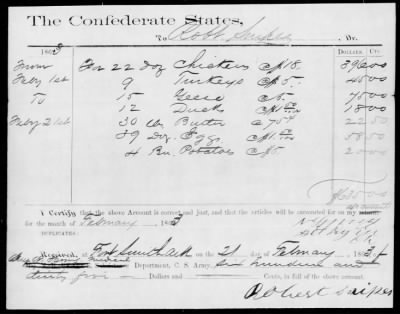 The Confederate States,
To Robt Snipes, Dr.
1863 DOLLARS. CTS.
From For 22 doz Chickens @ 18. 396 00
Feby 1st 9 Turkeys @ 5. 45 00
To 15 Geese @ 5. 75 00
12 Ducks @ 1.50 18 00
Feby 21st 30 lbs Butter @ 75¢ 22 50
39 Doz. Eggs @ 1.50 58 50
4 Bu Potatoes @ 5. 20 00
635 00
I Certify that the above Account is correct and just, and that the articles will be accounted for on my
for the month of February 1863
DUPLICATES:
Received, at Fort Smith Ark the 21 day of February 1863 of
Department, C. S. Army, Six hundred and
thirty five Dollars and Cents, in full of the above account.
Robert Snipes